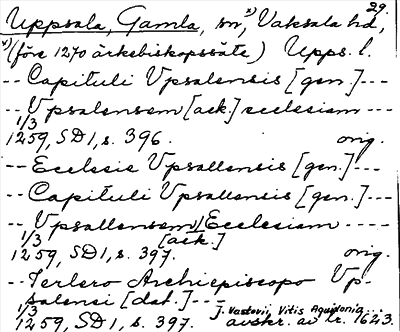 29.
Uppsala, Gamla, sn,ˣ⁾ Vaksala hd,
ˣ⁾(före 1270 ärkebiskopssäte) Upps. l.
-- Capituli Vpsalensis [gen.] ---
-- Vpsalensem [ack.] ecclesiam ---
1/3
1259, SD 1, s. 396. orig.
-- Ecclesie Vpsallensis [gen.] ---
-- Capituli Vpsallensis [gen.] ---
-- Vpsallensem Ecclesiam ----
[ack.]
1/3
1259, SD 1, s. 397. orig.
-- Terlero Archiepiscopo Vp-
salensi [dat.] ---
J. Vastovii, Vitis Aquilonia,
1/3
1259, SD 1, s. 397. avskr. av tr. 1623.